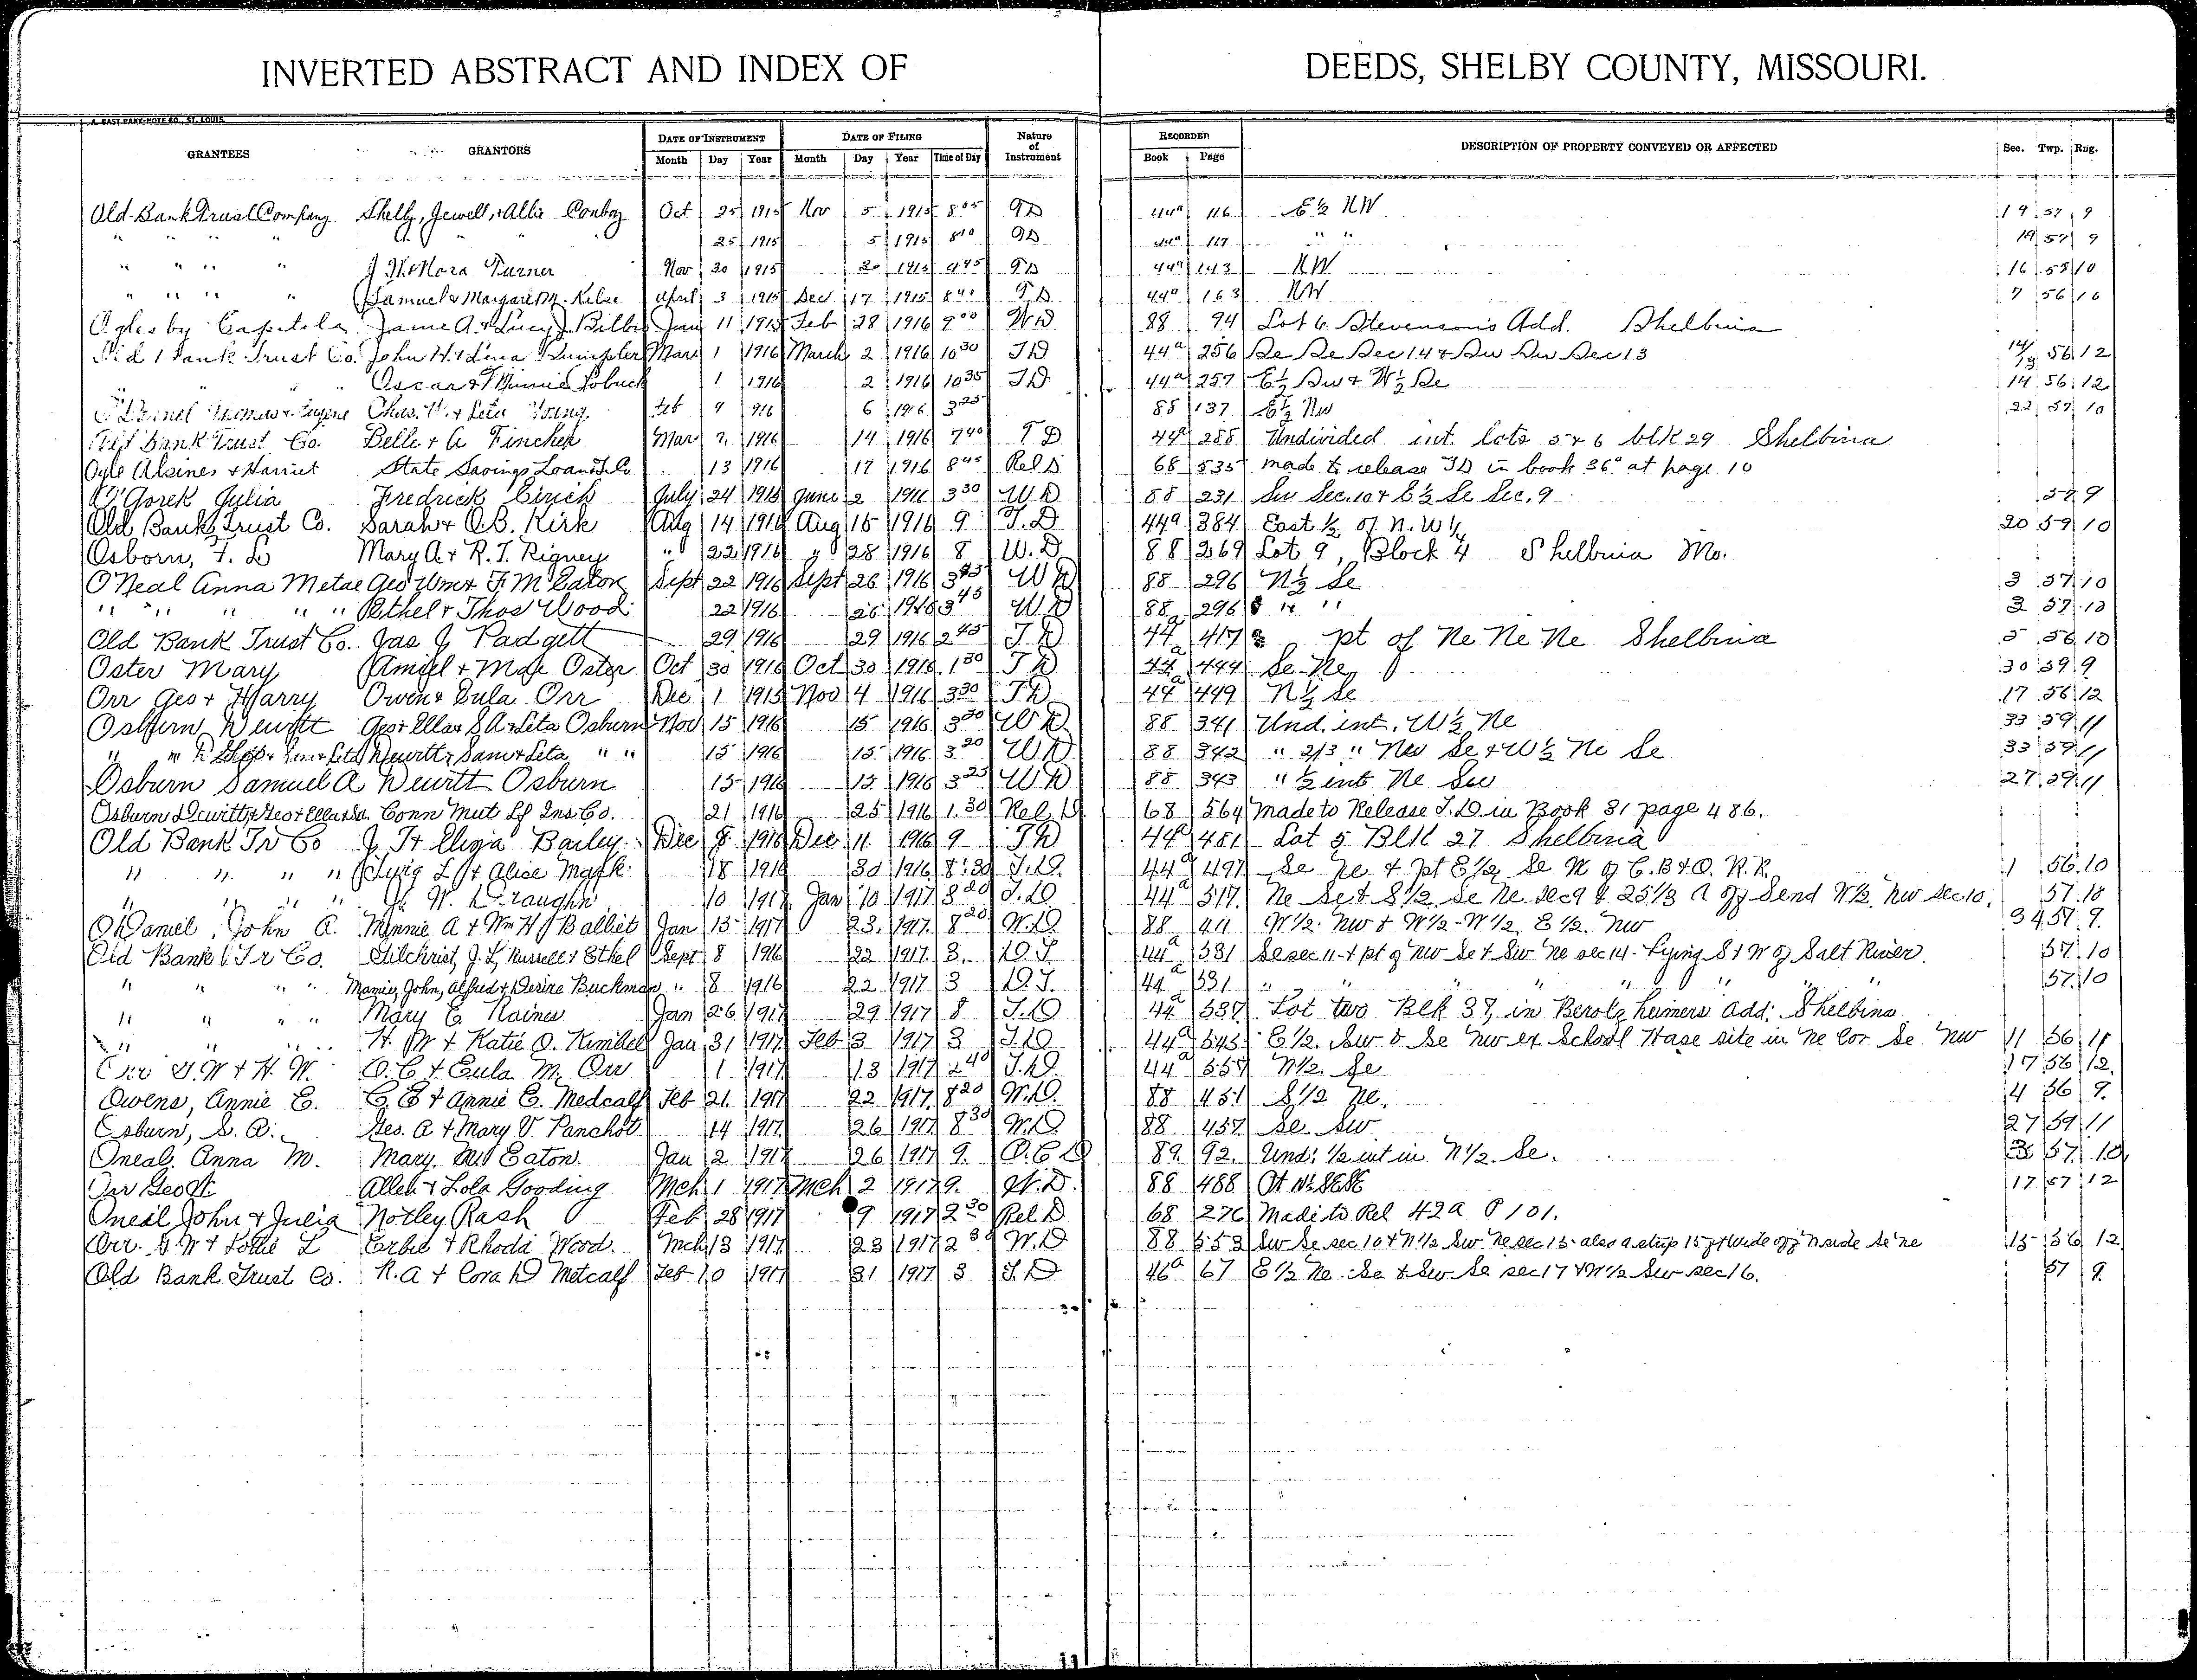 INVERTED ABSTRACT AND INDEX OF DEEDS, SHELBY COUNTY, MISSOURI.
GRANTEES GRANTORS DATE OF INSTRUMENT DATE OF FILING Nature of Instrument RECORDED DESCRIPTION OF PROPERTY CONVEYED OR AFFECTED Sec. Twp. Rng.
Month Day Year Month Day Year Time of Day Book Page
Old Bank Trust Company Shelly, Jewell, & Allie Conboy Oct 25 1915 Nov 5 1915 8 05 TD 44a 116 E½ NW 19 57 9
" " " " 25 1915 5 1915 8 10 TD 44a 117 " " 19 57 9
" " " " Nora Turner Nov 20 1915 20 1915 9 45 TD 44a 143 NW 16 58 10
" " " " Samuel & Margaret M. April 3 1915 Dec 17 1915 TD 44a 163 NW 7 56 10
Oglesby Capitola Jame A. & Lucy J. Bilby Jan 11 1915 Feb 28 1916 9 00 WD 88 94 Lot 6 Stevenson's Add. Shelbina
Old Bank Trust Co. John H. & Lena Mar 1 1916 March 2 1916 10 30 TD 44a 256 Se Se Sec 14 & Sw Sw Sec 13 14/13 56 12
" " " Oscar & 1 1916 2 1916 10 35 TD 44a 257 E½ Sw & W½ Se 14 56 12
Thomas & Chas. W. & Leta Young Feb 6 1916 3 25 88 137 E½ Nw 22 57 10
Old Bank Trust Co. Belle & A Fincher Mar 1916 14 1916 7 40 TD 44a 288 Undivided int. lots 5 & 6 blk 29 Shelbina
Ogle Alsines & Harriet State Savings Loan & Co 13 1916 17 1916 8 40 Rel D 68 535 made to release TD in book 36a at page 10
O'Gorek Julia Fredrick Cirich July 24 1915 June 2 1916 3 30 WD 88 231 Sw Sec. 10 & E½ Se Sec. 9 57 9
Old Bank Trust Co. Sarah & O.B. Kirk Aug 14 1916 Aug 15 1916 9 T.D 44a 384 East ½ of N.W ¼ 20 59 10
Osborn, F. D Mary A & R. T. Rigney " 22 1916 " 28 1916 8 W.D 88 269 Lot 9, Block 4 Shelbina Mo.
O'Neal Anna Metae Geo Wm & F. M Eaton Sept 22 1916 Sept 26 1916 3 45 WD 88 296 N½ Se 3 57 10
" " " " " Ethel & Thos Wood 22 1916 26 1916 3 45 WD 88 296 " " 3 57 10
Old Bank Trust Co. Jas J Padgett 29 1916 29 1916 2 45 T.D 44a 417 pt of Ne Ne Ne Shelbina 5 56 10
Oster Mary Amiel & Mae Oster Oct 30 1916 Oct 30 1916 1 30 TD 44a 444 Se Ne 30 59 9
Orr Geo & Harry Owen & Eula Orr Dec 1 1915 Nov 4 1916 3 30 TD 44a 449 N½ Se 17 56 12
Osburn Dewitt Geo & Ella & S.A. & Leta Osburn Nov 15 1916 15 1916 3 20 WD 88 341 Und. int. W½ Ne 33 59 11
" Geo & Sam & Leta Dewitt & Sam & Leta " " 15 1916 15 1916 3 20 WD 88 342 " 2/3 " Nw Se & W½ Ne Se 33 59 11
Osburn Samuel A Dewitt Osburn 15 1916 15 1916 3 25 WD 88 343 " ½ int Ne Sw 27 59 11
Osburn Dewitt & Geo & Ella & S.A. Conn Mut Lf Ins Co. 21 1916 25 1916 1.30 Rel D 68 564 made to Release T.D. in Book 31 page 486.
Old Bank Tr Co J. T & Eliza Bailey Dec 8 1916 Dec 11 1916 9 TD 44a 481 Lot 5 Blk 27 Shelbina
" " " " L & Alice Mark 18 1916 30 1916 8:30 T.D. 44a 497 Se Ne & Pt E½ Se N of C.B & Q. R.R. 1 56 10
" " " " W. Draughn 10 1917 Jan 10 1917 8 20 T.D 44a 517 Ne Se & S½ Se Ne sec 9 & 25⅓ A off S end W½ Nw sec 10. 57 10
O'Daniel, John A. Minnie A & Wm H Balliet Jan 15 1917 23 1917 8 20 W.D. 88 411 W½ Nw & W½ - W½ E½ Nw 34 57 9
Old Bank Tr Co. Gilchrist, J. L, Russell & Ethel Sept 8 1916 22 1917 3 D.T. 44a 531 Se sec 11 & pt of Nw Se & Sw Ne sec 14 - Lying S & W of Salt River. 57 10
" " " " Mamie, John, Alfred & Desire Buckman " 8 1916 22 1917 3 D.T. 44a 531 " " " " " 57 10
" " " " Mary E. Raines Jan 26 1917 29 1917 8 T.D 44a 537 Lot two Blk 37 in Berolzheimers Add; Shelbina
" " " " H. M & Katie O. Kimbel Jan 31 1917 Feb 3 1917 3 T.D 44a 545 E½ Sw & Se Nw ex School Hase site in Ne Cor Se Nw 11 56 11
Orr G. W & H. W. O. E & Eula M. Orr 1 1917 13 1917 2 40 T.D. 44a 557 N½ Se 17 56 12
Owens, Annie E. C. E & Annie E. Medcalf Feb 21 1917 22 1917 8 20 W.D. 88 451 S½ Ne. 4 56 9
Osburn, S. A. Geo. A & Mary V Panchot 14 1917 26 1917 8 30 W.D 88 457 Se. Sw 27 59 11
Oneal. Anna M. Mary Eaton. Jan 2 1917 26 1917 9. Q.C D 89 92. Und; ½ int in N½ Se. 3 57 10
Orr Geo Allen & Lola Gooding Mch 1 1917 Mch 2 1917 9. W.D. 88 488 Pt 17 57 12
Oneal John & Julia Notley Rash Feb 28 1917 9 1917 2 30 Rel D 68 276 Made to Rel 42a P 101.
Orr. G. W & Lottie L Erbie & Rhoda Wood. Mch 13 1917 23 1917 2 30 W.D 88 553 Sw Se sec 10 & N½ Sw Ne sec 15 - also a strip 15 ft wide off N side Se Ne 15 56 12
Old Bank Trust Co. R. A. & Cora D Metcalf Feb 10 1917 31 1917 3 T.D 46a 67 E½ Ne Se & Sw Se sec 17 & W½ Sw sec 16. 57 9